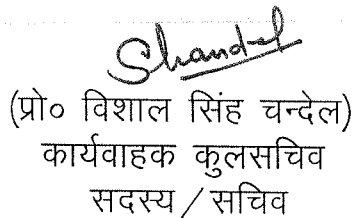 Shandel
(प्रो० विशाल सिंह चन्देल)
कार्यवाहक कुलसचिव
सदस्य / सचिव